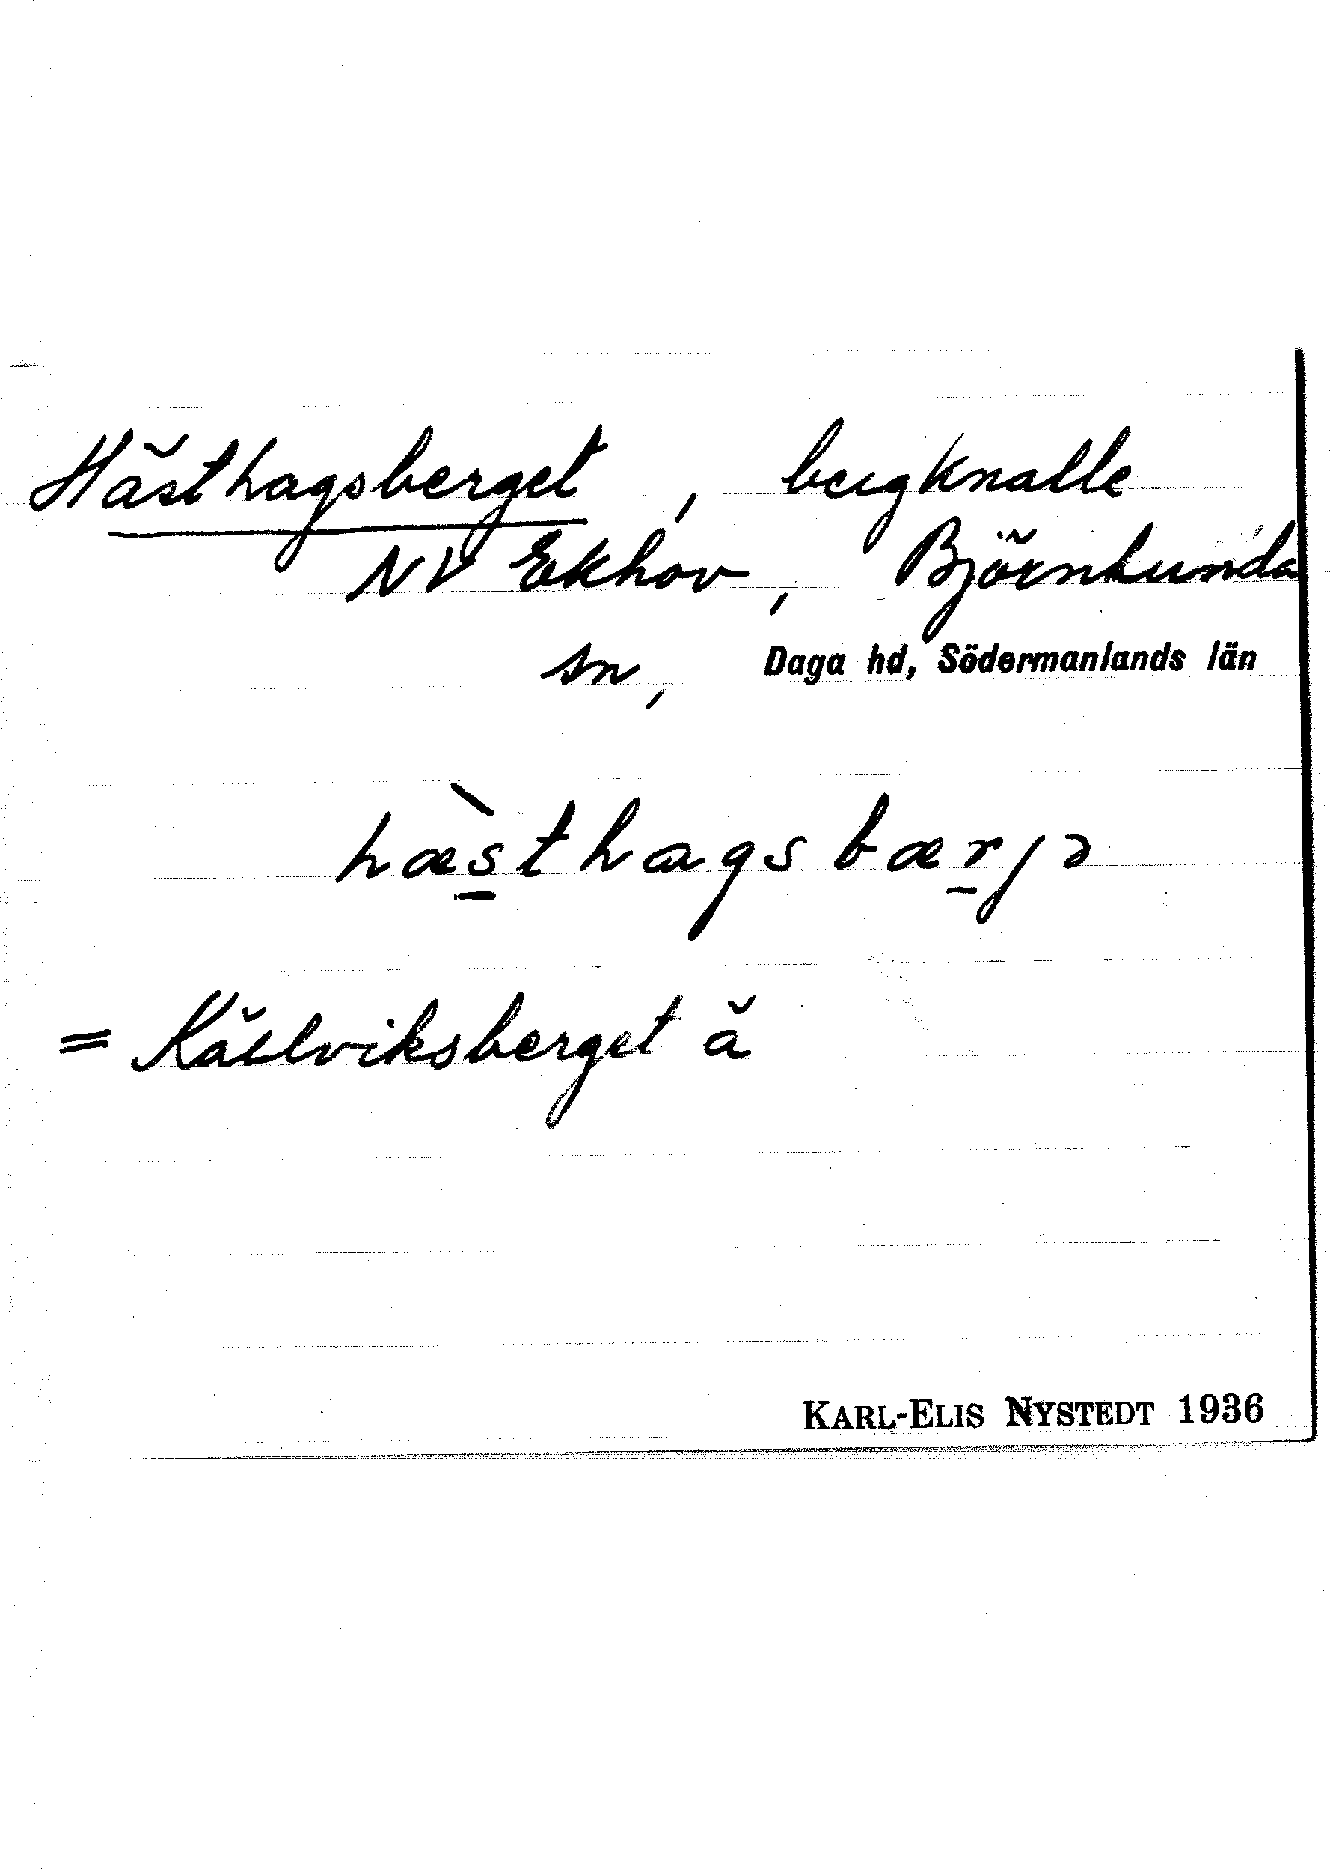 Hästhagsberget, bergknalle
NV Ekhov, Björnlunda
sn, Daga hd, Södermanlands län
hæ̀sthagsbærjə
= Källviksberget ä
KARL-ELIS NYSTEDT 1936